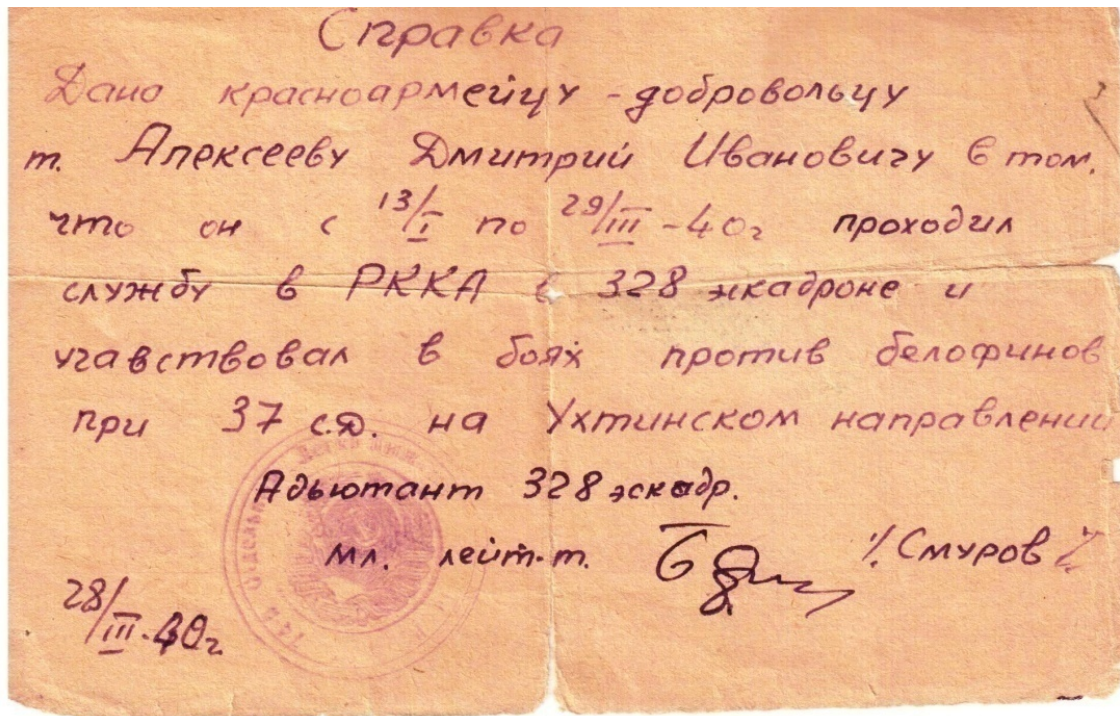 Справка
Дано красноармейцу - добровольцу
т. Алексееву Дмитрий Ивановичу в том.
что он с 13/I по 29/III - 40г проходил
службу в РККА в 328 экадроне и
учавствовал в боях против белофинов
при 37 с.д. на Ухтинском направлении
Адьютант 328 эскадр.
мл. лейт-т. /. Смуров /.
28/III-40г.